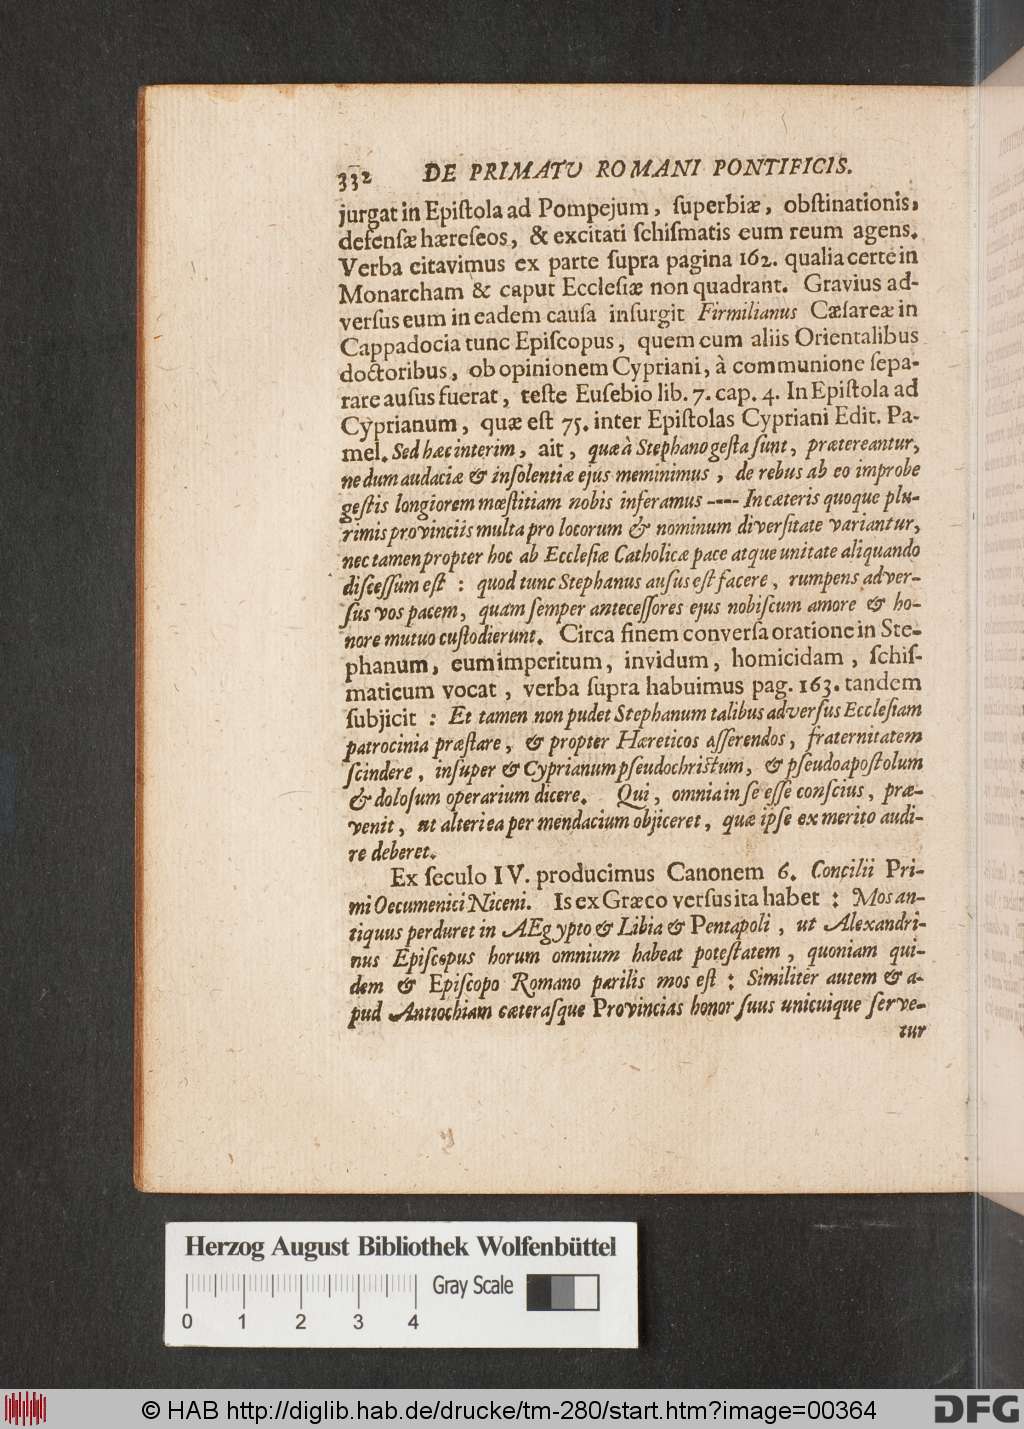 332 DE PRIMATU ROMANI PONTIFICIS.
jurgat in Epiſtola ad Pompejum, ſuperbiæ, obſtinationis,
defenſæ hæreſeos, & excitati ſchiſmatis eum reum agens.
Verba citavimus ex parte ſupra pagina 162. qualia certe in
Monarcham & caput Eccleſiæ non quadrant. Gravius ad-
verſus eum in eadem cauſa inſurgit Firmilianus Cæſareæ in
Cappadocia tunc Epiſcopus, quem cum aliis Orientalibus
doctoribus, ob opinionem Cypriani, à communione ſepa-
rare auſus fuerat, teſte Euſebio lib. 7. cap. 4. In Epiſtola ad
Cyprianum, quæ eſt 75. inter Epiſtolas Cypriani Edit. Pa-
mel. Sed hæc interim, ait, quæ à Stephano geſta ſunt, prætereantur,
ne dum audaciæ & inſolentiæ ejus meminimus, de rebus ab eo improbe
geſtis longiorem mœſtitiam nobis inferamus ---- In cæteris quoque plu-
rimis provinciis multa pro locorum & nominum diverſitate variantur,
nec tamen propter hoc ab Eccleſiæ Catholicæ pace atque unitate aliquando
diſceſſum eſt : quod tunc Stephanus auſus eſt facere, rumpens adver-
ſus vos pacem, quam ſemper anteceſſores ejus nobiſcum amore & ho-
nore mutuo cuſtodierunt. Circa finem converſa oratione in Ste-
phanum, eum imperitum, invidum, homicidam, ſchiſ-
maticum vocat, verba ſupra habuimus pag. 163. tandem
ſubjicit : Et tamen non pudet Stephanum talibus adverſus Eccleſiam
patrocinia præſtare, & propter Hæreticos aſſerendos, fraternitatem
ſcindere, inſuper & Cyprianum pſeudochriſtum, & pſeudoapoſtolum
& doloſum operarium dicere. Qui, omnia in ſe eſſe conſcius, præ-
venit, ut alteri ea per mendacium objiceret, quæ ipſe ex merito audi-
re deberet.
Ex ſeculo IV. producimus Canonem 6. Concilii Pri-
mi Oecumenici Niceni. Is ex Græco verſus ita habet : Mos an-
tiquus perduret in AEgypto & Libia & Pentapoli, ut Alexandri-
nus Epiſcopus horum omnium habeat poteſtatem, quoniam qui-
dem & Epiſcopo Romano parilis mos eſt : Similiter autem & a-
pud Antiochiam cæterasque Provincias honor ſuus unicuique ſerve-
tur
Herzog August Bibliothek Wolfenbüttel
Gray Scale
0 1 2 3 4
© HAB http://diglib.hab.de/drucke/tm-280/start.htm?image=00364
DFG